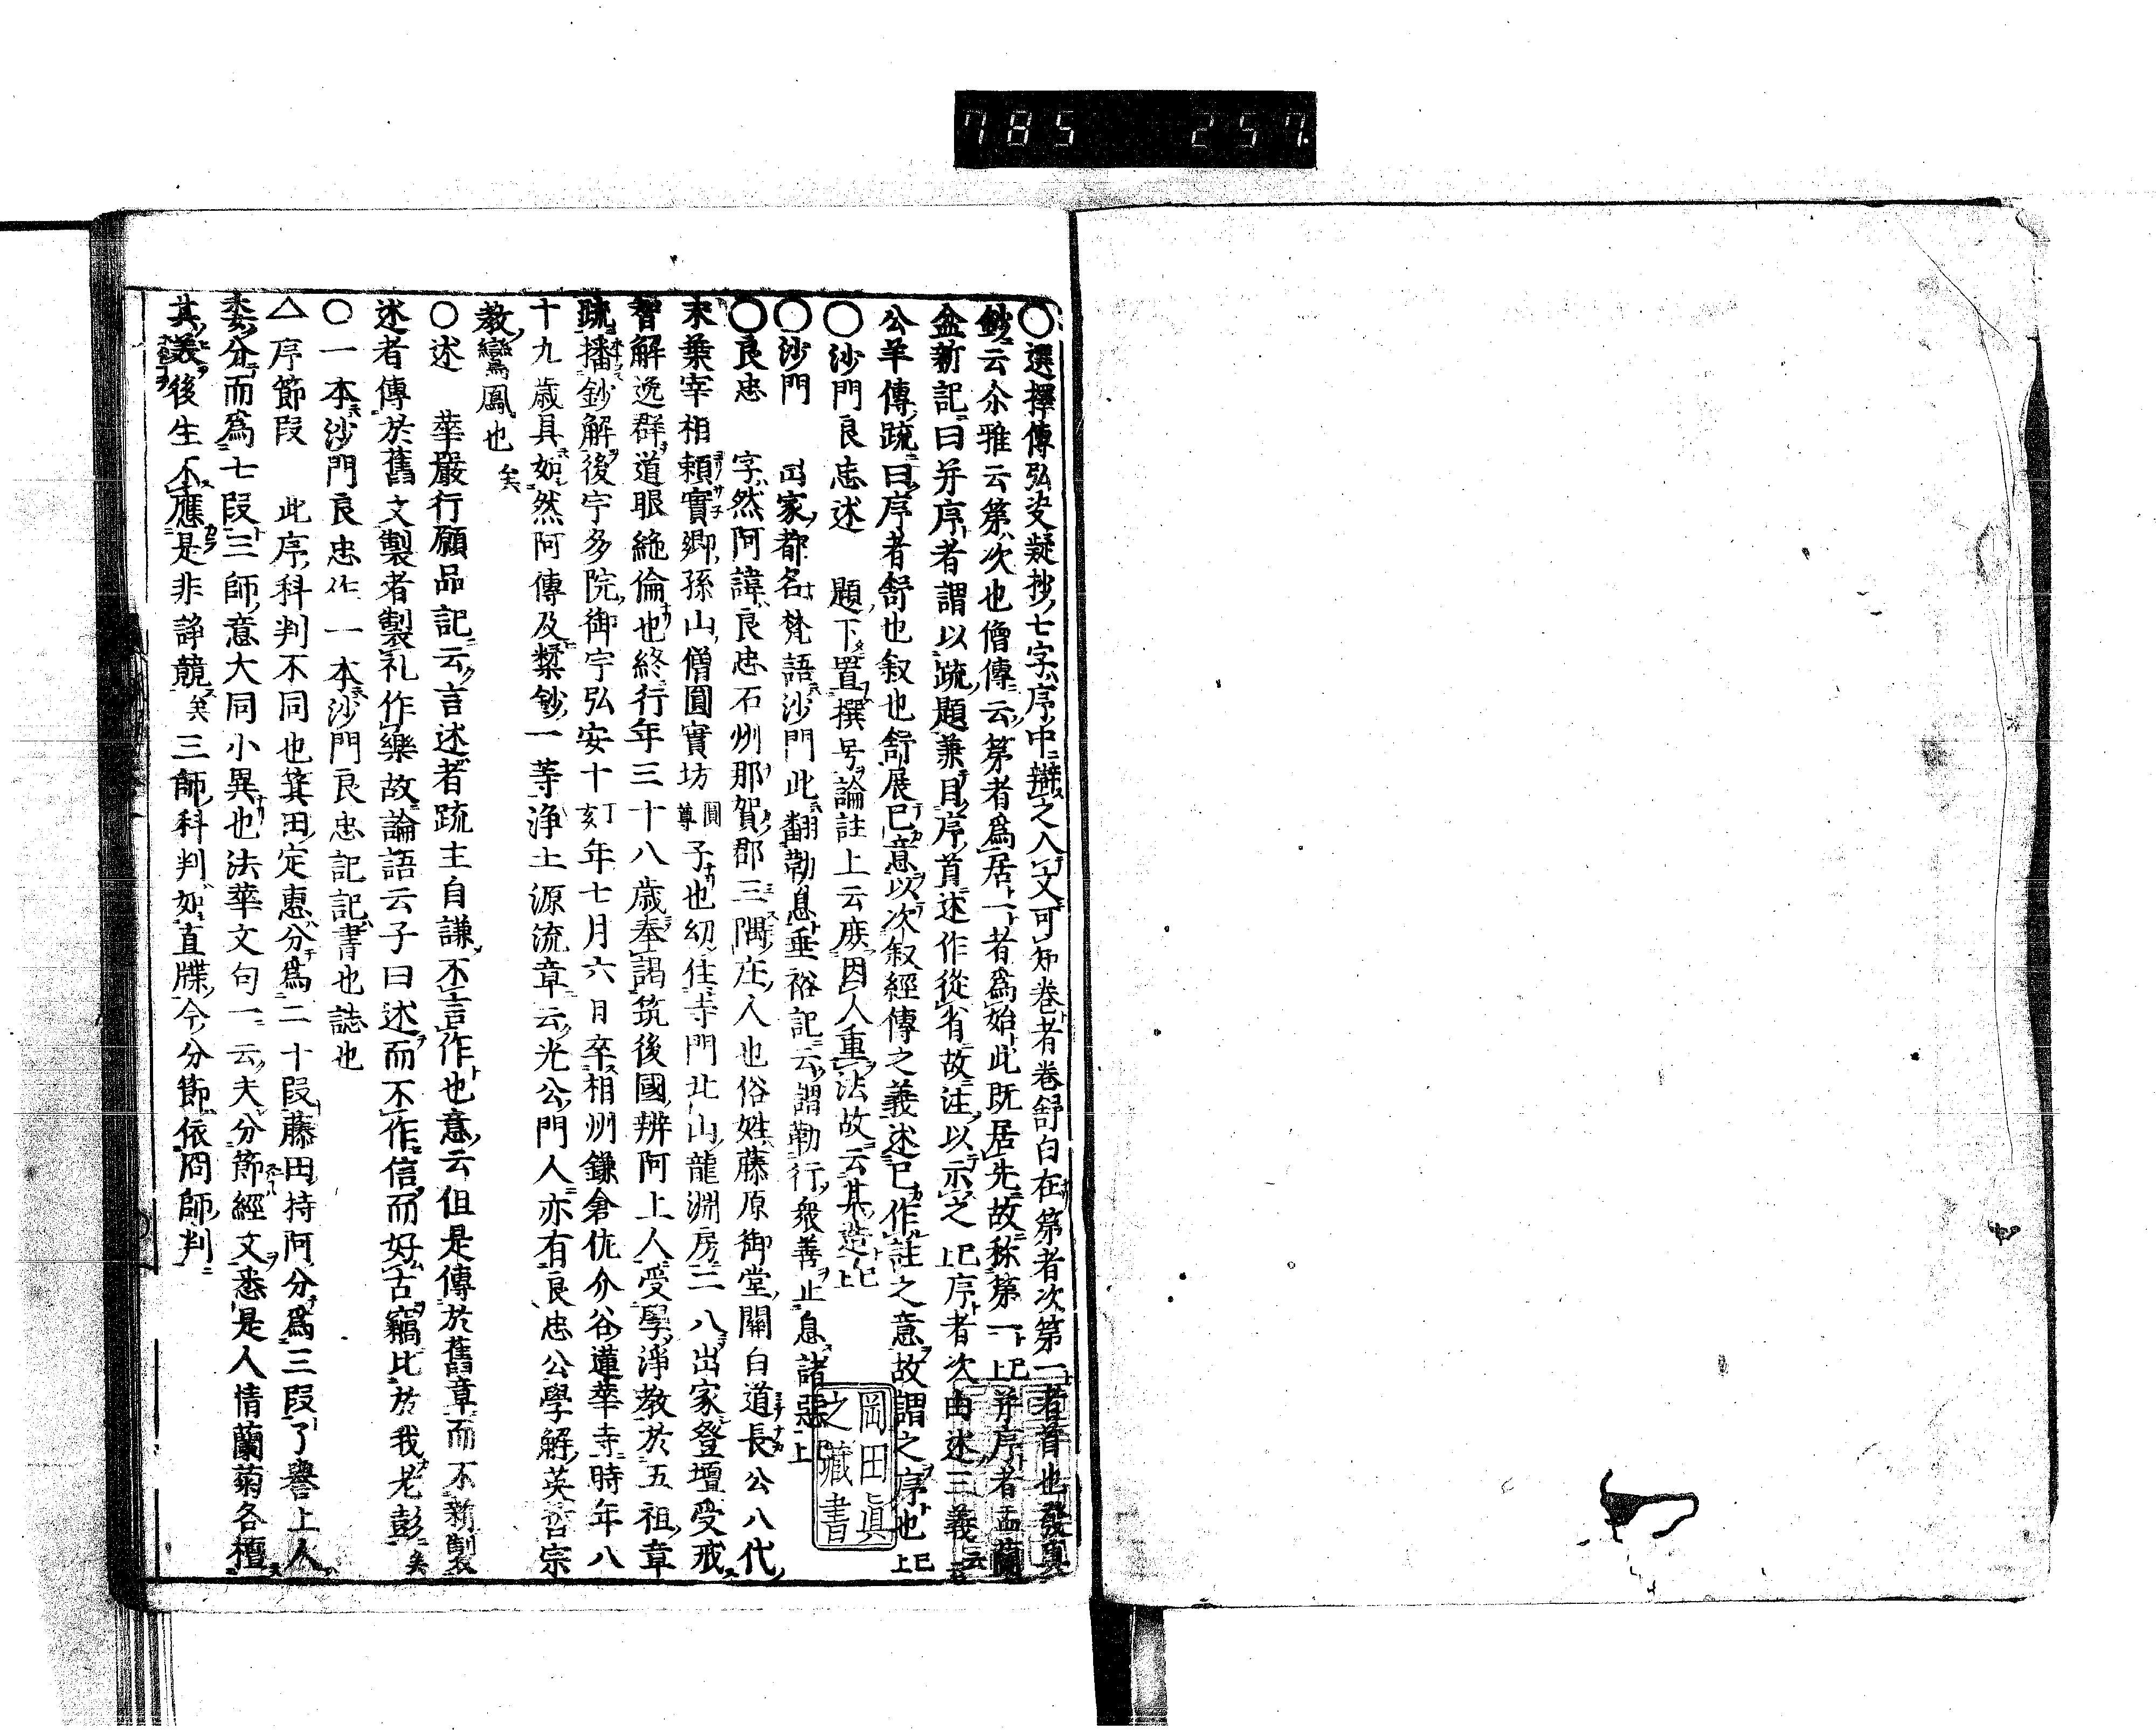 785 257.
〇選擇傳弘决疑抄七字序中辯之入文可知卷者卷舒白在第者次第一者首也發眞
鈔云尒雅云第次也僧傳云第者爲居一者爲始此既居先故称第一已上并序者盂蘭
盆新記曰并序者謂以疏題兼目序首述作從省故注以示之已上序者次由述三義
公羊傳疏曰序者舒也叙也舒展已意以次叙經傳之義述已作註之意故謂之序也已上
〇沙門良忠述 題下置撰号論註上云庶因人重法故云某造已上
〇沙門 出家都名梵語沙門此翻勤息垂裕記云謂勤行衆善止息諸惡已上
〇良忠 字然阿諱良忠石州那賀郡三隅庄人也俗姓藤原御堂關白道長公八代
末葉宰相頼實卿孫山僧圓實坊圓尊子也幼住寺門北山龍淵房二八出家登壇受戒
智解逸群道眼絶倫也終行年三十八歳奉謁筑後國辨阿上人受學淨教於五祖章
疏播鈔解後宇多院御宇弘安十丁亥年七月六日卒相州鎌倉佐介谷蓮華寺時年八
十九歳具如然阿傳及糅鈔一等淨土源流章云光公門人亦有良忠公學解英哲宗
教鸞鳳也矣
〇述 華嚴行願品記云言述者疏主自謙不言作也意云但是傳於舊章而不新製
述者傳於舊文製者製礼作樂故論語云子曰述而不作信而好古竊比於我老彭矣
〇一本沙門良忠作一本沙門良忠記記書也誌也
△序節段 此序科判不同也箕田定惠分爲二十段藤田持阿分爲三段了譽上人
委分而爲七段三師意大同小異也法華文句一云夫分節經文悉是人情蘭菊各檀
其美後生不應是非諍競矣三師科判如直牒今分節依冏師判
岡田眞
之藏書